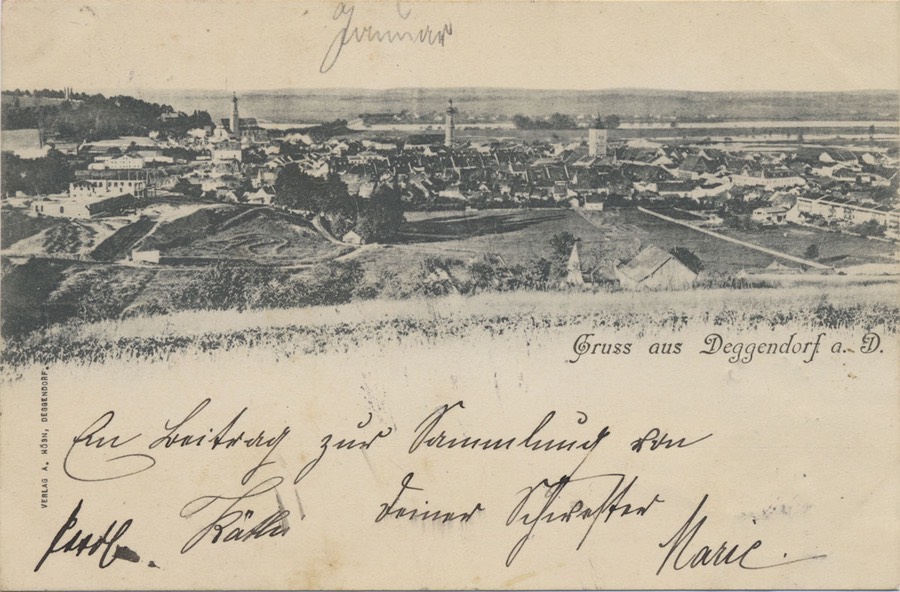 Januar
Gruss aus Deggendorf a. D.
VERLAG A. HÖSN, DEGGENDORF.
Ein Beitrag zur Sammlung von
Käthi deiner Schwester
Marie.